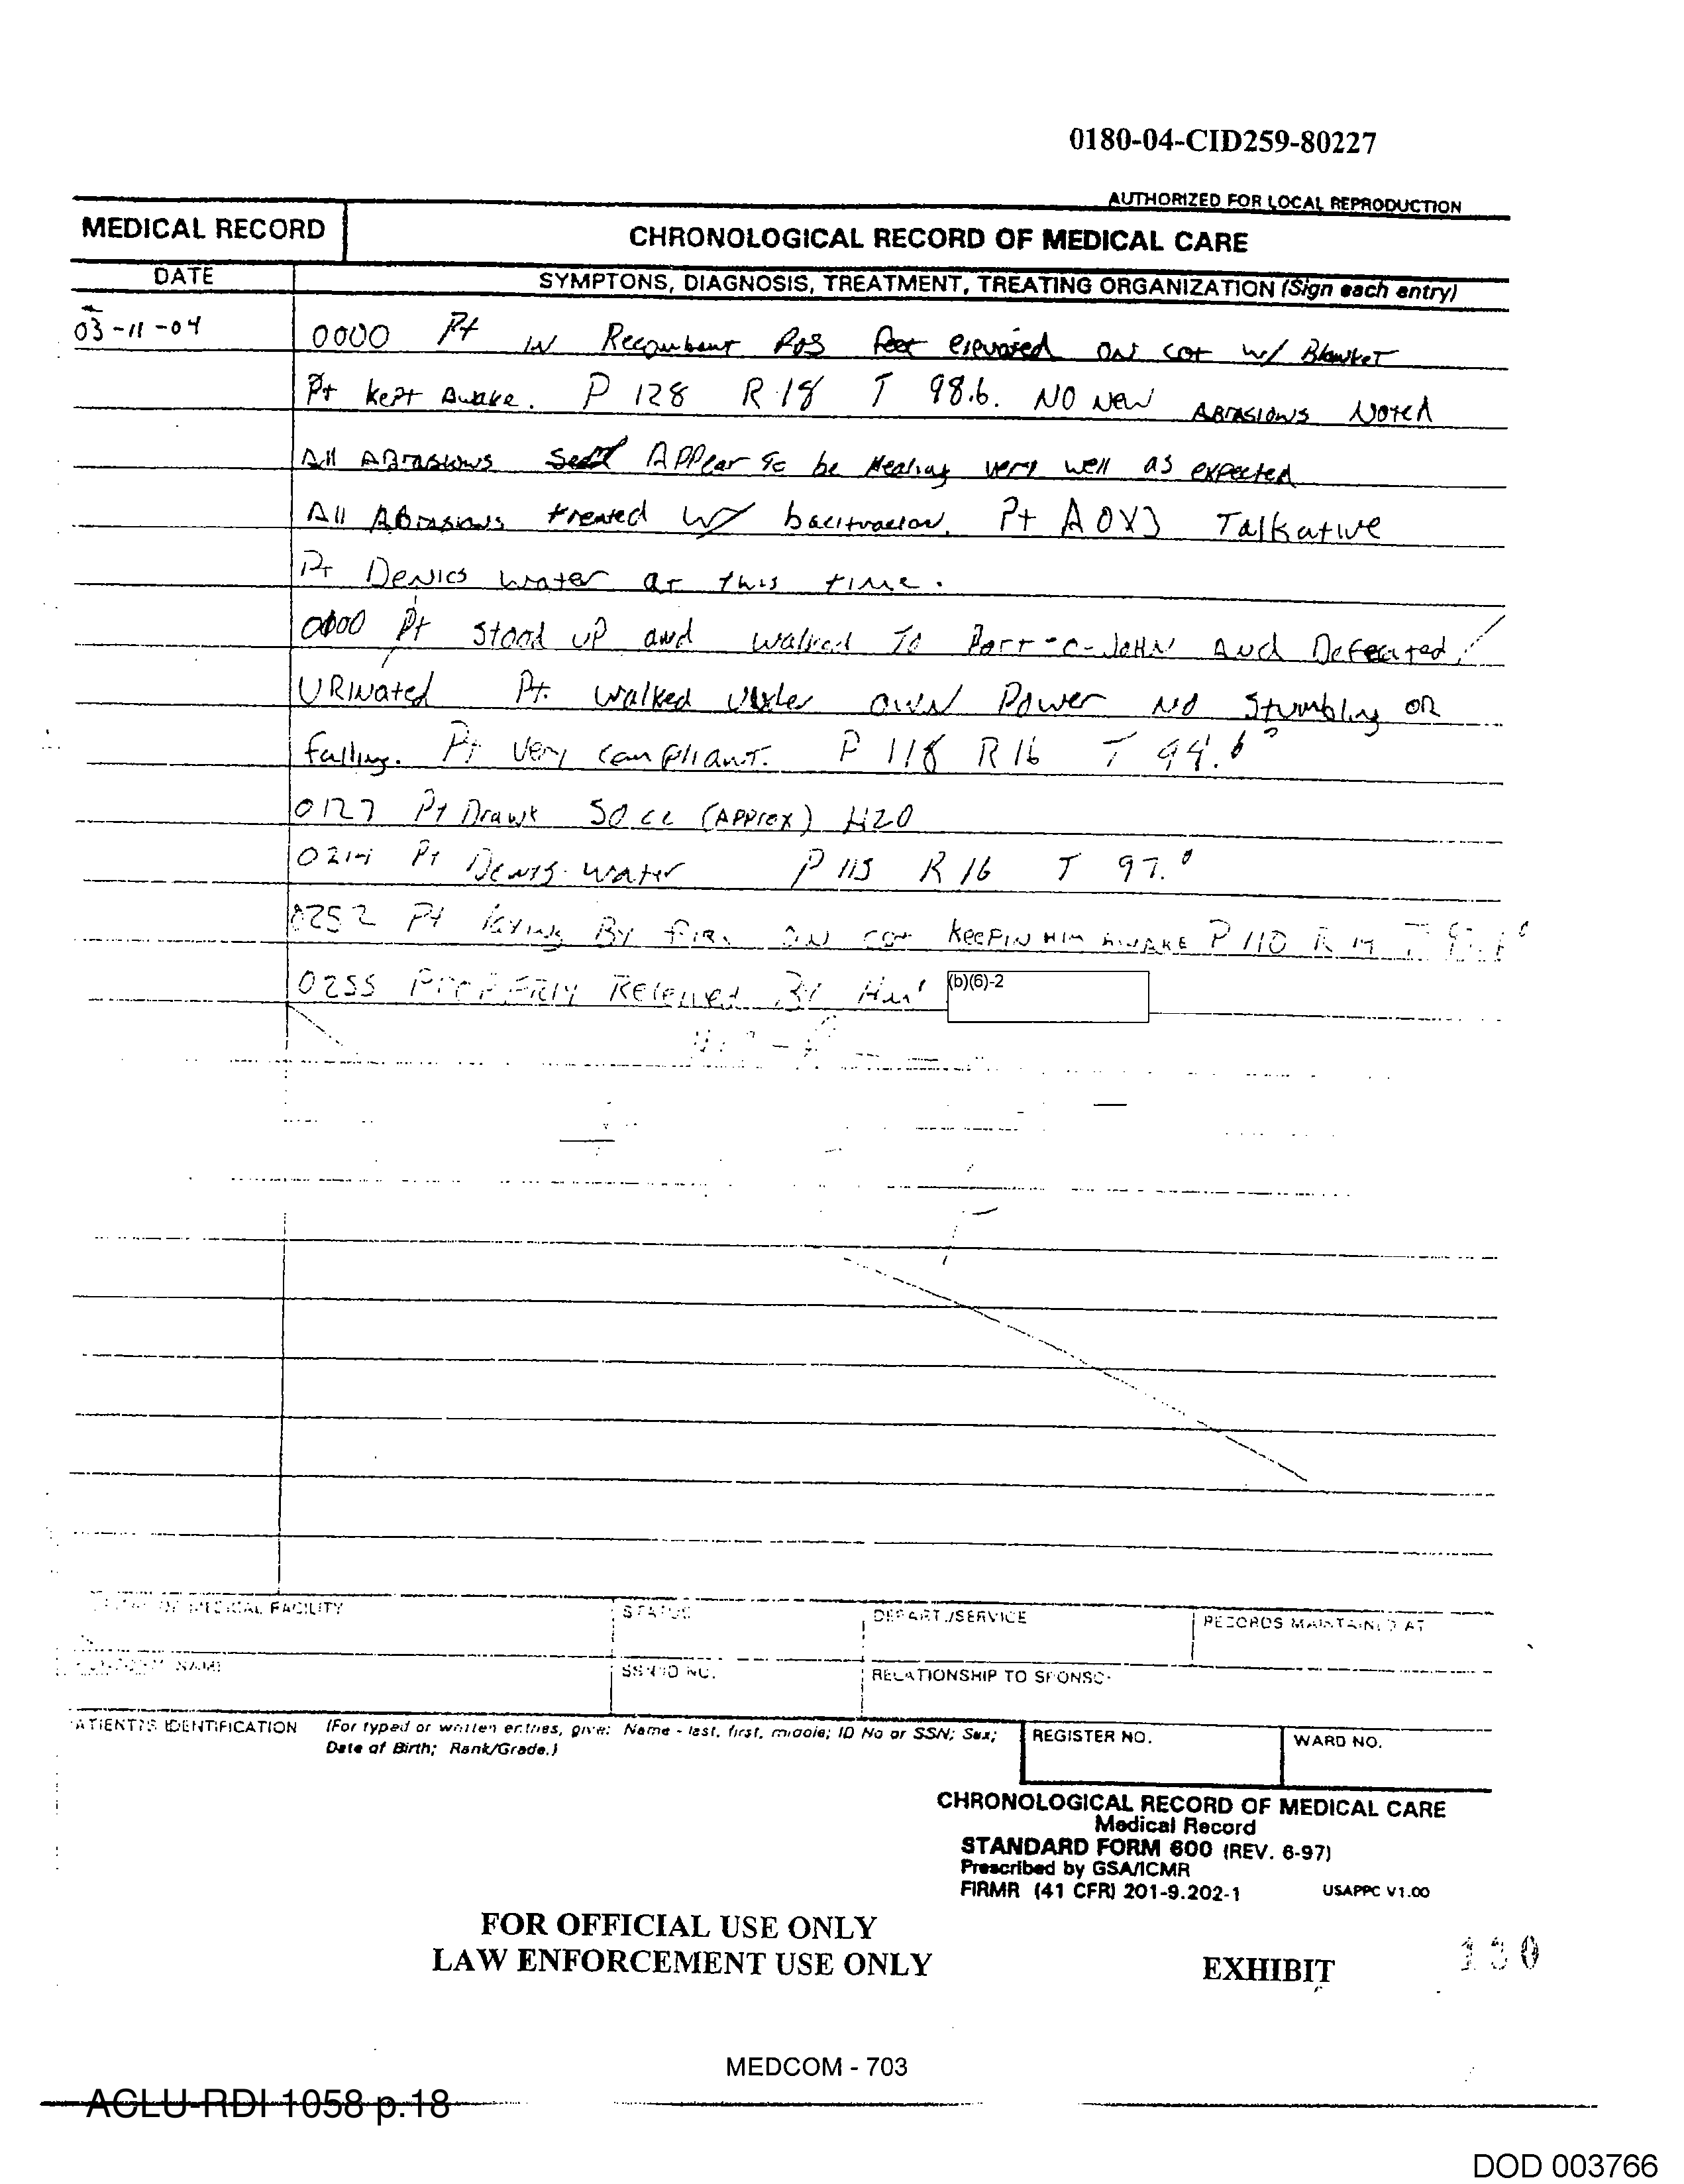 0180-04-CID259-80227
AUTHORIZED FOR LOCAL REPRODUCTION
MEDICAL RECORD
CHRONOLOGICAL RECORD OF MEDICAL CARE
DATE
SYMPTONS, DIAGNOSIS, TREATMENT, TREATING ORGANIZATION (Sign each entry)
03-11-04
0000 Pt IN Recumbent Pos feet elevated ON cot w/ Blanket
Pt kept Awake. P 128 R 18 T 98.6. NO New Abrasions Noted
All Abrasions Appear to be Healing very well as expected
All Abrasions treated w/ bacitracion. Pt AOX3 Talkative
Pt Denies water at this time.
Pt stood up and walked To Port-o-John And Defecated/
URINated Pt. walked under own Power NO Stumbling OR
falling. Pt very compliant. P 118 R 16 T 94.6°
0127 Pt Drank 50 cc (Approx) H2O
Pt Denys water P 115 R 16 T 97.°
0252 Pt laying By fire ON cot KEEPIN HIM AWAKE P 110 R
0255 Property Received By
(b)(6)-2
OF MEDICAL FACILITY
STATUS
DEPART./SERVICE
RECORDS MAINTAINED AT
NAME
SSN/ID NO.
RELATIONSHIP TO SPONSO
ATIENT'S IDENTIFICATION
(For typed or written entries, give: Name - last, first, middle; ID No or SSN; Sex;
Date of Birth; Rank/Grade.)
REGISTER NO.
WARD NO.
CHRONOLOGICAL RECORD OF MEDICAL CARE
Medical Record
STANDARD FORM 600 (REV. 6-97)
Prescribed by GSA/ICMR
FIRMR (41 CFR) 201-9.202-1
USAPPC V1.00
FOR OFFICIAL USE ONLY
LAW ENFORCEMENT USE ONLY
EXHIBIT
130
MEDCOM - 703
ACLU-RDI 1058 p.18
DOD 003766